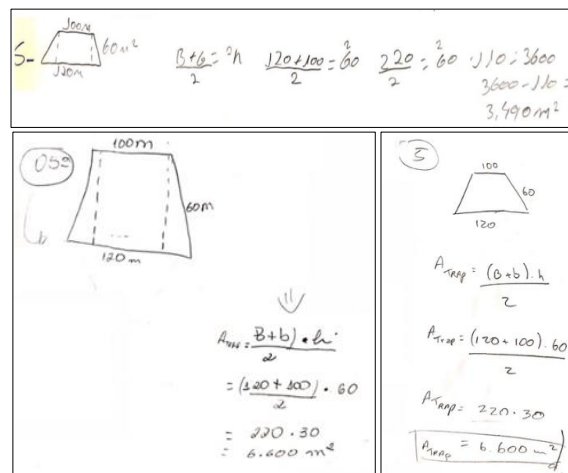 100m
5- 60m²
120m
B+b/2 = ²h 120+100/2 = ²60 220/2 = ²60 · 110 = 3600
3600-110 =
3,490m²
05ª
100m
60m
120 m
A = B+b) · h
2
= (120 + 100) · 60
2
= 220 · 30
= 6.600 m²
5
100
60
120
A Trap = (B+b).h
2
A Trap = (120+100).60
2
A Trap = 220.30
A Trap = 6.600 m²